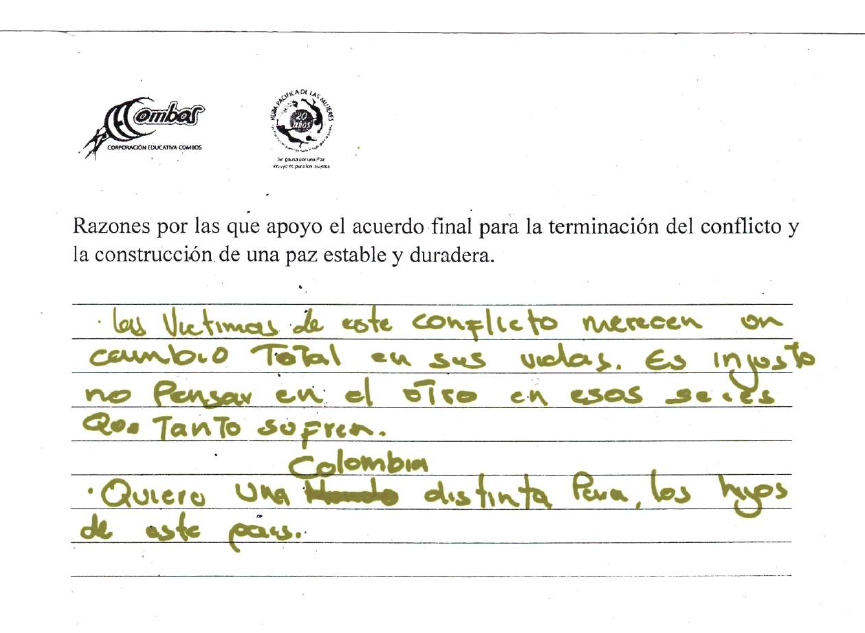 Combos
CORPORACIÓN EDUCATIVA COMBOS
RUTA PACIFICA DE LAS MUJERES
20
años
Razones por las que apoyo el acuerdo final para la terminación del conflicto y
la construcción de una paz estable y duradera.
· las Victimas de este conflicto merecen un
cambio Total en sus vidas. Es injusto
no Pensar en el otro en esos seres
Que Tanto sufren.
Colombia
· Quiero una distinta Para, los hijos
de este pais.